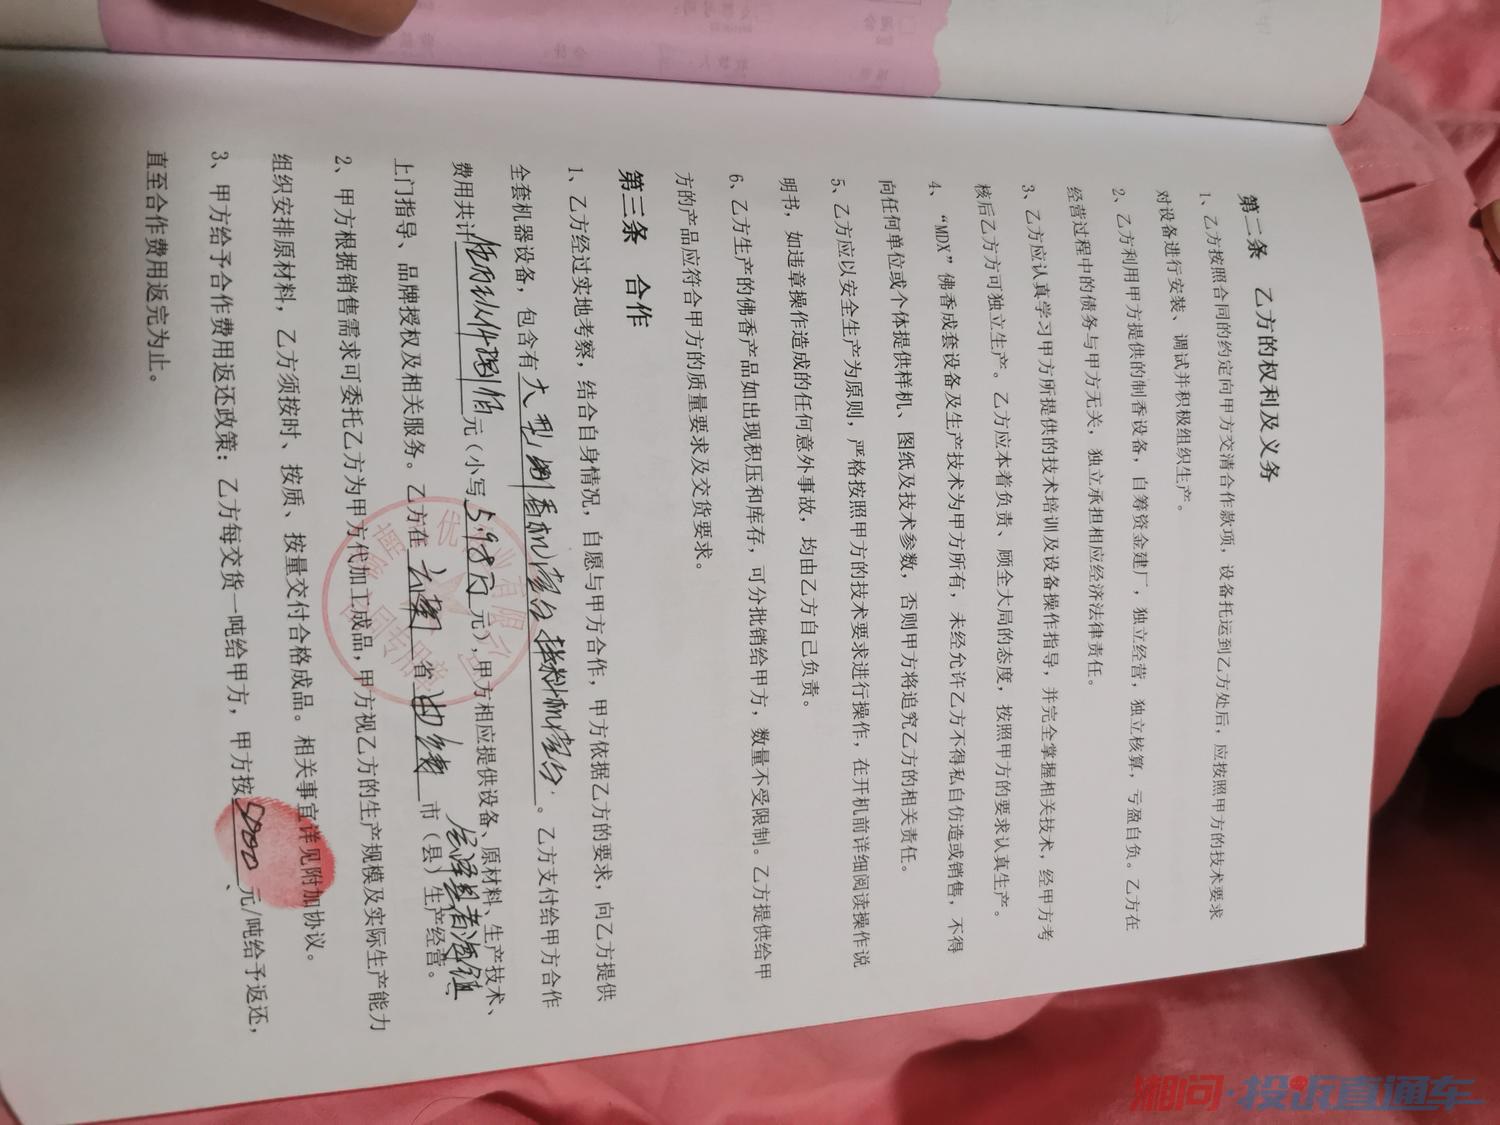 第二条 乙方的权利及义务
1、乙方按照合同的约定向甲方交清合作款项，设备托运到乙方处后，应按照甲方的技术要求
对设备进行安装、调试并积极组织生产。
2、乙方利用甲方提供的制香设备，自筹资金建厂，独立经营，独立核算，亏盈自负。乙方在
经营过程中的债务与甲方无关，独立承担相应经济法律责任。
3、乙方应认真学习甲方所提供的技术培训及设备操作指导，并完全掌握相关技术，经甲方考
核后乙方方可独立生产。乙方应本着负责、顾全大局的态度，按照甲方的要求认真生产。
4、“MDX”佛香成套设备及生产技术为甲方所有，未经允许乙方不得私自仿造或销售，不得
向任何单位或个体提供样机、图纸及技术参数，否则甲方将追究乙方的相关责任。
5、乙方应以安全生产为原则，严格按照甲方的技术要求进行操作，在开机前详细阅读操作说
明书，如违章操作造成的任何意外事故，均由乙方自己负责。
6、乙方生产的佛香产品如出现积压和库存，可分批销给甲方，数量不受限制。乙方提供给甲
方的产品应符合甲方的质量要求及交货要求。
第三条 合作
1、乙方经过实地考察，结合自身情况，自愿与甲方合作，甲方依据乙方的要求，向乙方提供
全套机器设备，包含有大型制香机壹台 拌料机壹台。乙方支付给甲方合作
费用共计伍万玖仟捌佰元（小写5.98万元），甲方相应提供设备、原材料、生产技术、
上门指导、品牌授权及相关服务。乙方在云南省曲靖市（县）生产经营。
会泽县者海镇
2、甲方根据销售需求可委托乙方为甲方代加工成品，甲方视乙方的生产规模及实际生产能力
组织安排原材料，乙方须按时、按质、按量交付合格成品。相关事宜详见附加协议。
3、甲方给予合作费用返还政策：乙方每交货一吨给甲方，甲方按5000元/吨给予返还，
直至合作费用返完为止。
湘问·投诉直通车